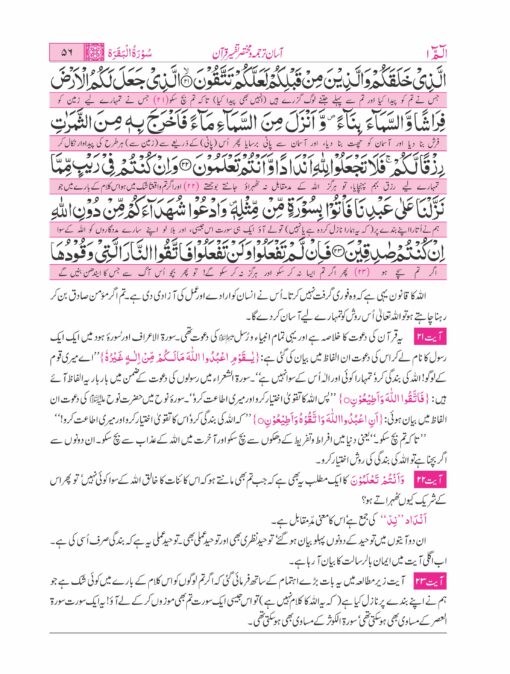 الٓمّٓ ١ آسان ترجمہ و مختصر تفسیر قرآن سُوْرَةُ الْبَقَرَة ٥٦
الَّذِيْ خَلَقَكُمْ وَالَّذِيْنَ مِنْ قَبْلِكُمْ لَعَلَّكُمْ تَتَّقُوْنَ ﴿٢١﴾ الَّذِيْ جَعَلَ لَكُمُ الْاَرْضَ
جس نے تم کو پیدا کیا اور تم سے پہلے جتنے لوگ گزرے ہیں (انہیں بھی پیدا کیا) تاکہ تم بچ سکو (۲۱) جس نے تمہارے لیے زمین کو
فِرَاشًا وَّالسَّمَآءَ بِنَآءً ۠ وَّاَنْزَلَ مِنَ السَّمَآءِ مَآءً فَاَخْرَجَ بِهٖ مِنَ الثَّمَرٰتِ
فرش بنا دیا اور آسمان کو چھت بنا دیا، اور آسمان سے پانی برسایا پھر اُس (پانی) کے ذریعے سے (زمین سے) ہر طرح کی پیداوار نکال کر
رِزْقًا لَّكُمْ ۚ فَلَا تَجْعَلُوْا لِلّٰهِ اَنْدَادًا وَّاَنْتُمْ تَعْلَمُوْنَ ﴿٢٢﴾ وَاِنْ كُنْتُمْ فِيْ رَيْبٍ مِّمَّا
تمہارے لیے رزق بہم پہنچایا، تو ہرگز اللہ کے مدمقابل نہ ٹھہراؤ جانتے بوجھتے (۲۲) اور اگر تم واقعتاً شک میں ہو اس کلام کے بارے میں جو
نَزَّلْنَا عَلٰى عَبْدِنَا فَاْتُوْا بِسُوْرَةٍ مِّنْ مِّثْلِهٖ ۠ وَادْعُوْا شُهَدَآءَكُمْ مِّنْ دُوْنِ اللّٰهِ
ہم نے اُتارا اپنے بندے پر (کہ یہ ہمارا نازل کردہ ہے یا نہیں) تو لے آؤ ایک ہی سورت اس جیسی، اور بلا لو اپنے سارے مددگاروں کو اللہ کے سوا
اِنْ كُنْتُمْ صٰدِقِيْنَ ﴿٢٣﴾ فَاِنْ لَّمْ تَفْعَلُوْا وَلَنْ تَفْعَلُوْا فَاتَّقُوا النَّارَ الَّتِيْ وَقُوْدُهَا
اگر تم سچے ہو (۲۳) پھر اگر تم ایسا نہ کر سکو اور ہرگز نہ کر سکو گے! تو پھر بچو اُس آگ سے جس کا ایندھن بنیں گے
اللہ کا قانون یہی ہے کہ وہ فوری گرفت نہیں کرتا۔ اُس نے انسان کو ارادے اور عمل کی آزادی دی ہے۔ تم اگر مؤمن صادق بن کر
رہنا چاہتے ہو تو اللہ تعالیٰ اُس روش کو تمہارے لیے آسان کر دے گا۔
آیت ۲۱ یہ قرآن کی دعوت کا خلاصہ ہے اور یہی تمام انبیاء و رُسل کی دعوت تھی۔ سورۃ الاعراف اور سُورۂ ہود میں ایک ایک
رسول کا نام لے کر اس کی دعوت ان الفاظ میں بیان کی گئی ہے: {يٰـقَوْمِ اعْبُدُوا اللّٰهَ مَا لَكُمْ مِّنْ اِلٰـهٍ غَيْرُهٗ} ’’اے میری قوم
کے لوگو! اللہ کی بندگی کرو تمہارا کوئی اور الٰہ اُس کے سوا نہیں ہے‘‘۔ سورۃ الشعراء میں رسولوں کی دعوت کے ضمن میں بار بار یہ الفاظ آئے
ہیں: {فَاتَّقُوا اللّٰهَ وَاَطِيْعُوْنِ} ’’پس اللہ کا تقویٰ اختیار کرو اور میری اطاعت کرو‘‘۔ سورۂ نوح میں حضرت نوح کی دعوت ان
الفاظ میں بیان ہوئی: {اَنِ اعْبُدُوا اللّٰهَ وَاتَّقُوْهُ وَاَطِيْعُوْنِ} ’’کہ اللہ کی بندگی کرو اُس کا تقویٰ اختیار کرو اور میری اطاعت کرو!‘‘
’’تاکہ تم بچ سکو‘‘۔ یعنی دنیا میں افراط و تفریط کے دھکوں سے بچ سکو اور آخرت میں اللہ کے عذاب سے بچ سکو۔ ان دونوں سے
اگر بچنا ہے تو اللہ کی بندگی کی روش اختیار کرو۔
آیت ۲۲ وَاَنْتُمْ تَعْلَمُوْنَ کا ایک مطلب یہ بھی ہے کہ جب تم بھی مانتے ہو کہ اس کائنات کا خالق اللہ کے سوا کوئی نہیں تو پھر اس
کے شریک کیوں ٹھہراتے ہو؟
اَنْدَاد ’’نِدّ‘‘ کی جمع ہے اُس کا معنی مدمقابل ہے۔
ان دو آیتوں میں توحید کے دونوں پہلو بیان ہو گئے، توحید نظری بھی اور توحید عملی بھی۔ توحید عملی یہ ہے کہ بندگی صرف اُسی کی ہے۔
اب اگلی آیت میں ایمان بالرسالت کا بیان آ رہا ہے۔
آیت ۲۳ آیت زیر مطالعہ میں یہ بات بڑے اہتمام کے ساتھ فرمائی گئی کہ اگر تم لوگوں کو اس کلام کے بارے میں کوئی شک ہے جو
ہم نے اپنے بندے پر نازل کیا ہے (کہ یہ اللہ کا کلام نہیں ہے) تو اس جیسی ایک سورت تم بھی موزوں کر کے لے آؤ! یہ ایک سورت سورۃ
العصر کے مساوی بھی ہو سکتی تھی، سورۃ الکوثر کے مساوی بھی ہو سکتی تھی۔